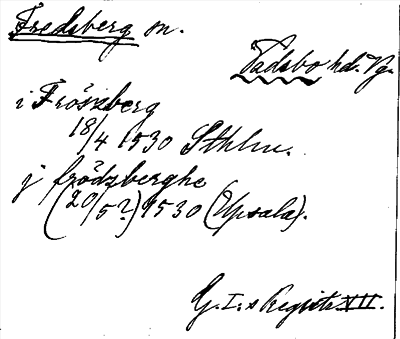 Fredsberg sn.
Vadsbo hd. Vg.
i Frószberg
18/4 1530 Sthlm.
j frödzberghe
(20/5?) 1530 (Upsala).
G. I:s Registr. VII.